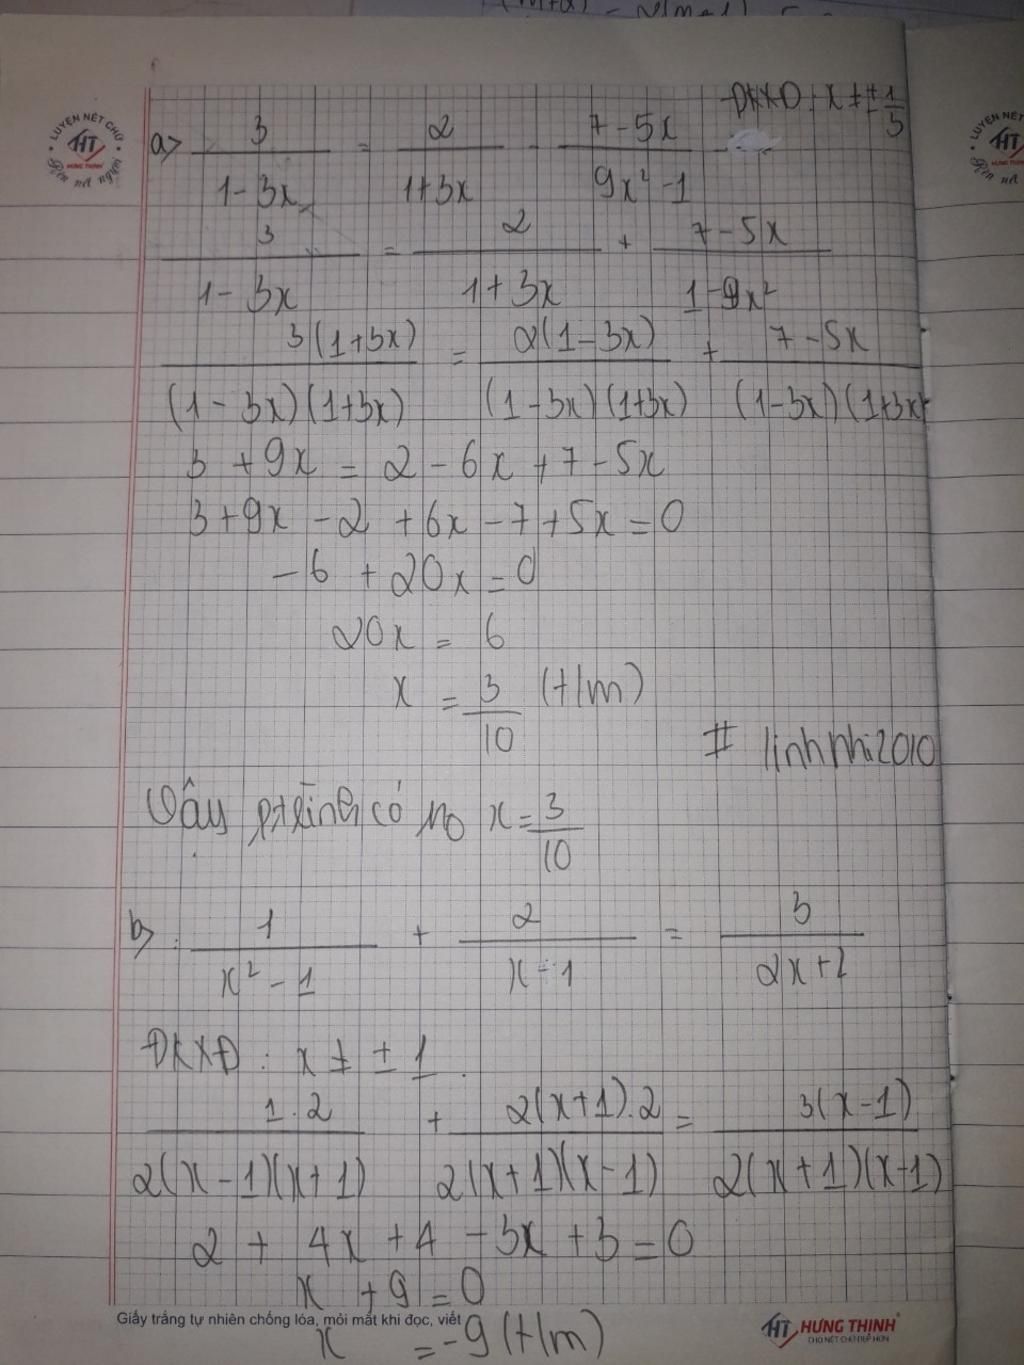 ĐKXĐ: x ≠ ± 1/3
a> 3/(1-3x) = 2/(1+3x) - (7-5x)/(9x²-1)
3/(1-3x) = 2/(1+3x) + (7-5x)/(1-9x²)
3(1+3x)/((1-3x)(1+3x)) = 2(1-3x)/((1-3x)(1+3x)) + (7-5x)/((1-3x)(1+3x))
3 + 9x = 2 - 6x + 7 - 5x
3 + 9x - 2 + 6x - 7 + 5x = 0
-6 + 20x = 0
20x = 6
x = 3/10 (t/m)
# linhnhi2010
Vậy ptrình có no x = 3/10
b> 1/(x²-1) + 2/(x-1) = 3/(2x+2)
ĐKXĐ: x ≠ ± 1.
1.2/(2(x-1)(x+1)) + 2(x+1).2/(2(x+1)(x-1)) = 3(x-1)/(2(x+1)(x-1))
2 + 4x + 4 - 3x + 3 = 0
x + 9 = 0
x = -9 (t/m)
LUYỆN NÉT CHỮ
HT
HƯNG THỊNH
Rèn nết người
LUYỆN NÉT
HT
HƯNG THỊNH
Rèn nết
Giấy trắng tự nhiên chống lóa, mỏi mắt khi đọc, viết
HT HƯNG THỊNH®
CHO NÉT CHỮ ĐẸP HƠN